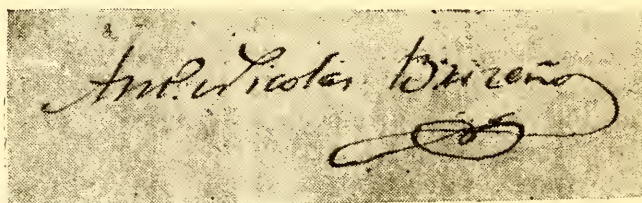 Ant. Nicolás Brizeño